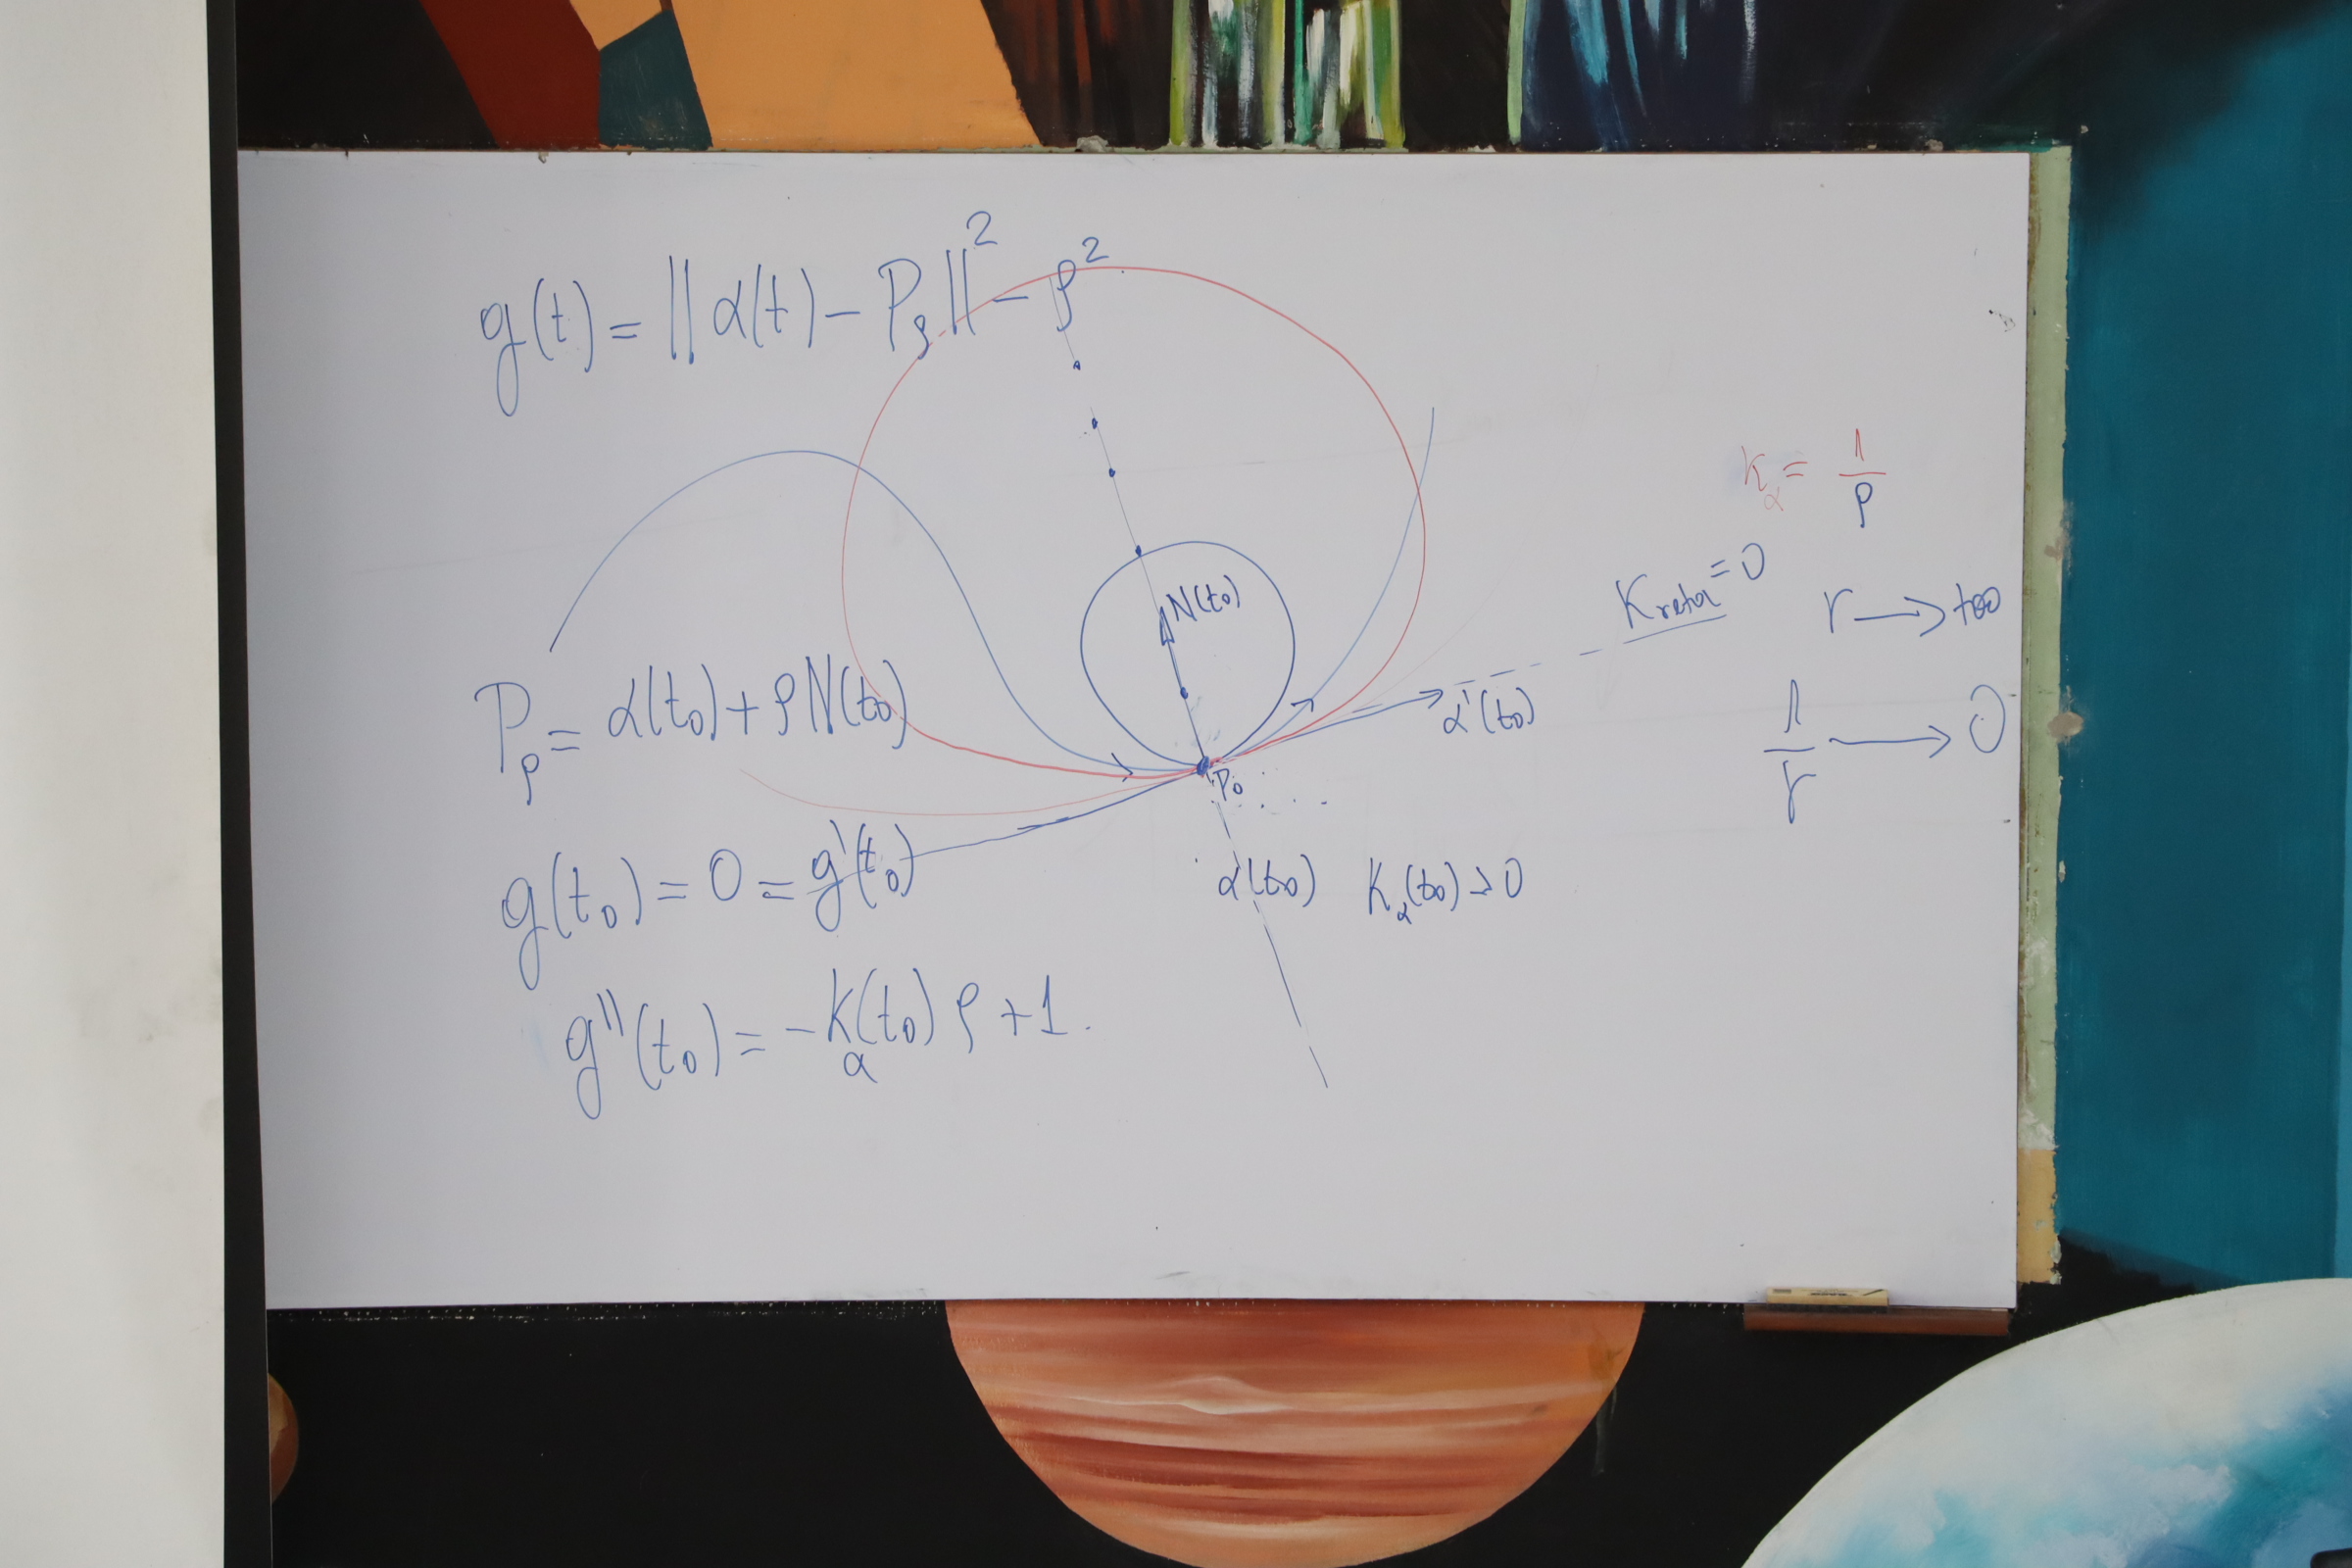 g(t) = || α(t) − P_ρ ||² − ρ²
K_α = 1/ρ
K_reta = 0
r → +∞
N(t₀)
P_ρ = α(t₀) + ρN(t₀)
α'(t₀)
1/r → 0
P₀
g(t₀) = 0 = g'(t₀)
α(t₀) K_α(t₀) > 0
g''(t₀) = −K_α(t₀) ρ + 1.